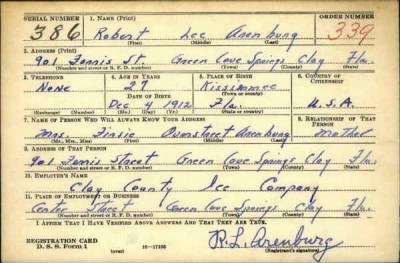 SERIAL NUMBER 1. NAME (Print) ORDER NUMBER
386 Robert Lee Arenburg 339
(First) (Middle) (Last)
2. ADDRESS (Print)
901 Ferris St. Green Cove Springs Clay Fla.
(Number and street or R. F. D. number) (Town) (County) (State)
3. TELEPHONE 4. AGE IN YEARS 5. PLACE OF BIRTH 6. COUNTRY OF CITIZENSHIP
None 27 Kissimmee
DATE OF BIRTH (Town or county)
Dec 4 1912 Fla. U.S.A.
(Exchange) (Number) (Mo.) (Day) (Yr.) (State or country)
7. NAME OF PERSON WHO WILL ALWAYS KNOW YOUR ADDRESS 8. RELATIONSHIP OF THAT PERSON
Mrs. Arenburg Mother
(Mr., Mrs., Miss) (First) (Middle) (Last)
9. ADDRESS OF THAT PERSON
901 Ferris Street Green Cove Springs Clay Fla.
(Number and street or R. F. D. number) (Town) (County) (State)
10. EMPLOYER'S NAME
Clay County Ice Company
11. PLACE OF EMPLOYMENT OR BUSINESS
Center Street Green Cove Springs Clay Fla.
(Number and street or R. F. D. number) (Town) (County) (State)
I AFFIRM THAT I HAVE VERIFIED ABOVE ANSWERS AND THAT THEY ARE TRUE.
REGISTRATION CARD R.L. Arenburg
D. S. S. Form 1 (over) 16-17105 (Registrant's signature)